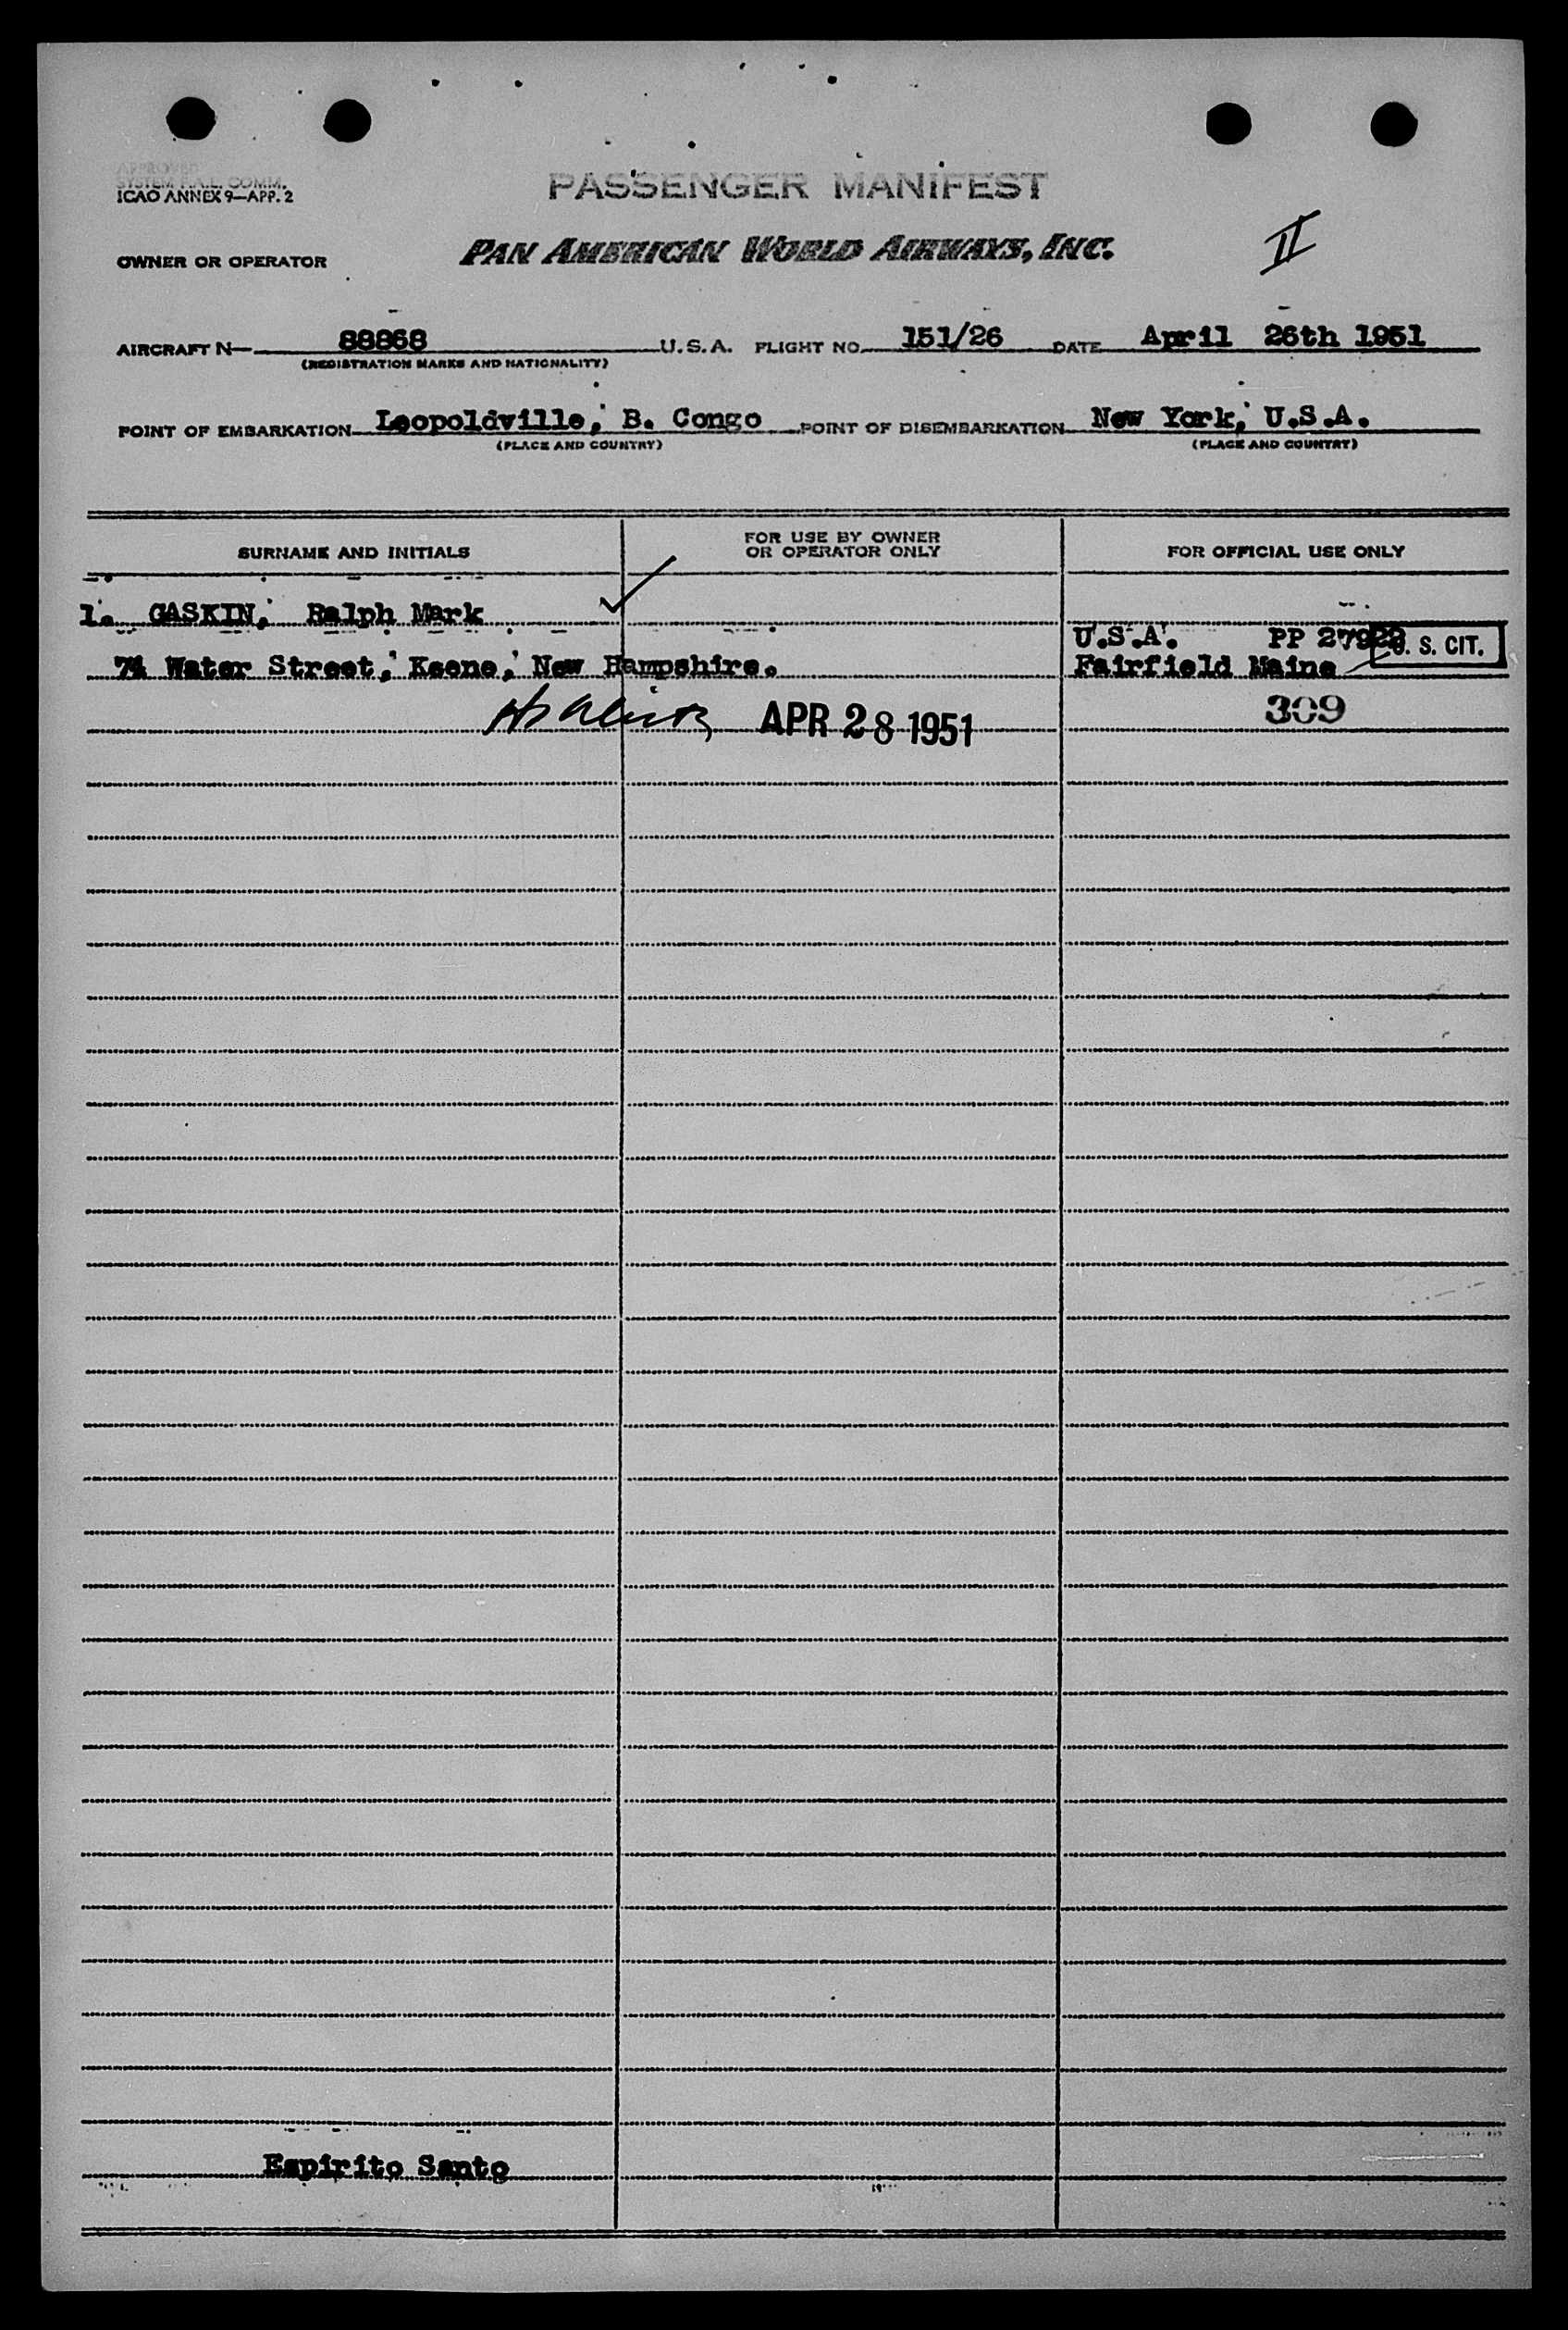 APPROVED
SYSTEM COMM.
ICAO ANNEX 9—APP. 2
PASSENGER MANIFEST
OWNER OR OPERATOR PAN AMERICAN WORLD AIRWAYS, INC. II
AIRCRAFT N— 88868 U.S.A. FLIGHT NO. 151/26 DATE April 26th 1951
(REGISTRATION MARKS AND NATIONALITY)
POINT OF EMBARKATION Leopoldville, B. Congo POINT OF DISEMBARKATION New York, U.S.A.
(PLACE AND COUNTRY) (PLACE AND COUNTRY)
SURNAME AND INITIALS FOR USE BY OWNER OR OPERATOR ONLY FOR OFFICIAL USE ONLY
1. GASKIN, Ralph Mark ✓
U.S.A. PP 27922 U. S. CIT.
74 Water Street, Keene, New Hampshire. Fairfield Maine
APR 28 1951 309
Espirito Santo